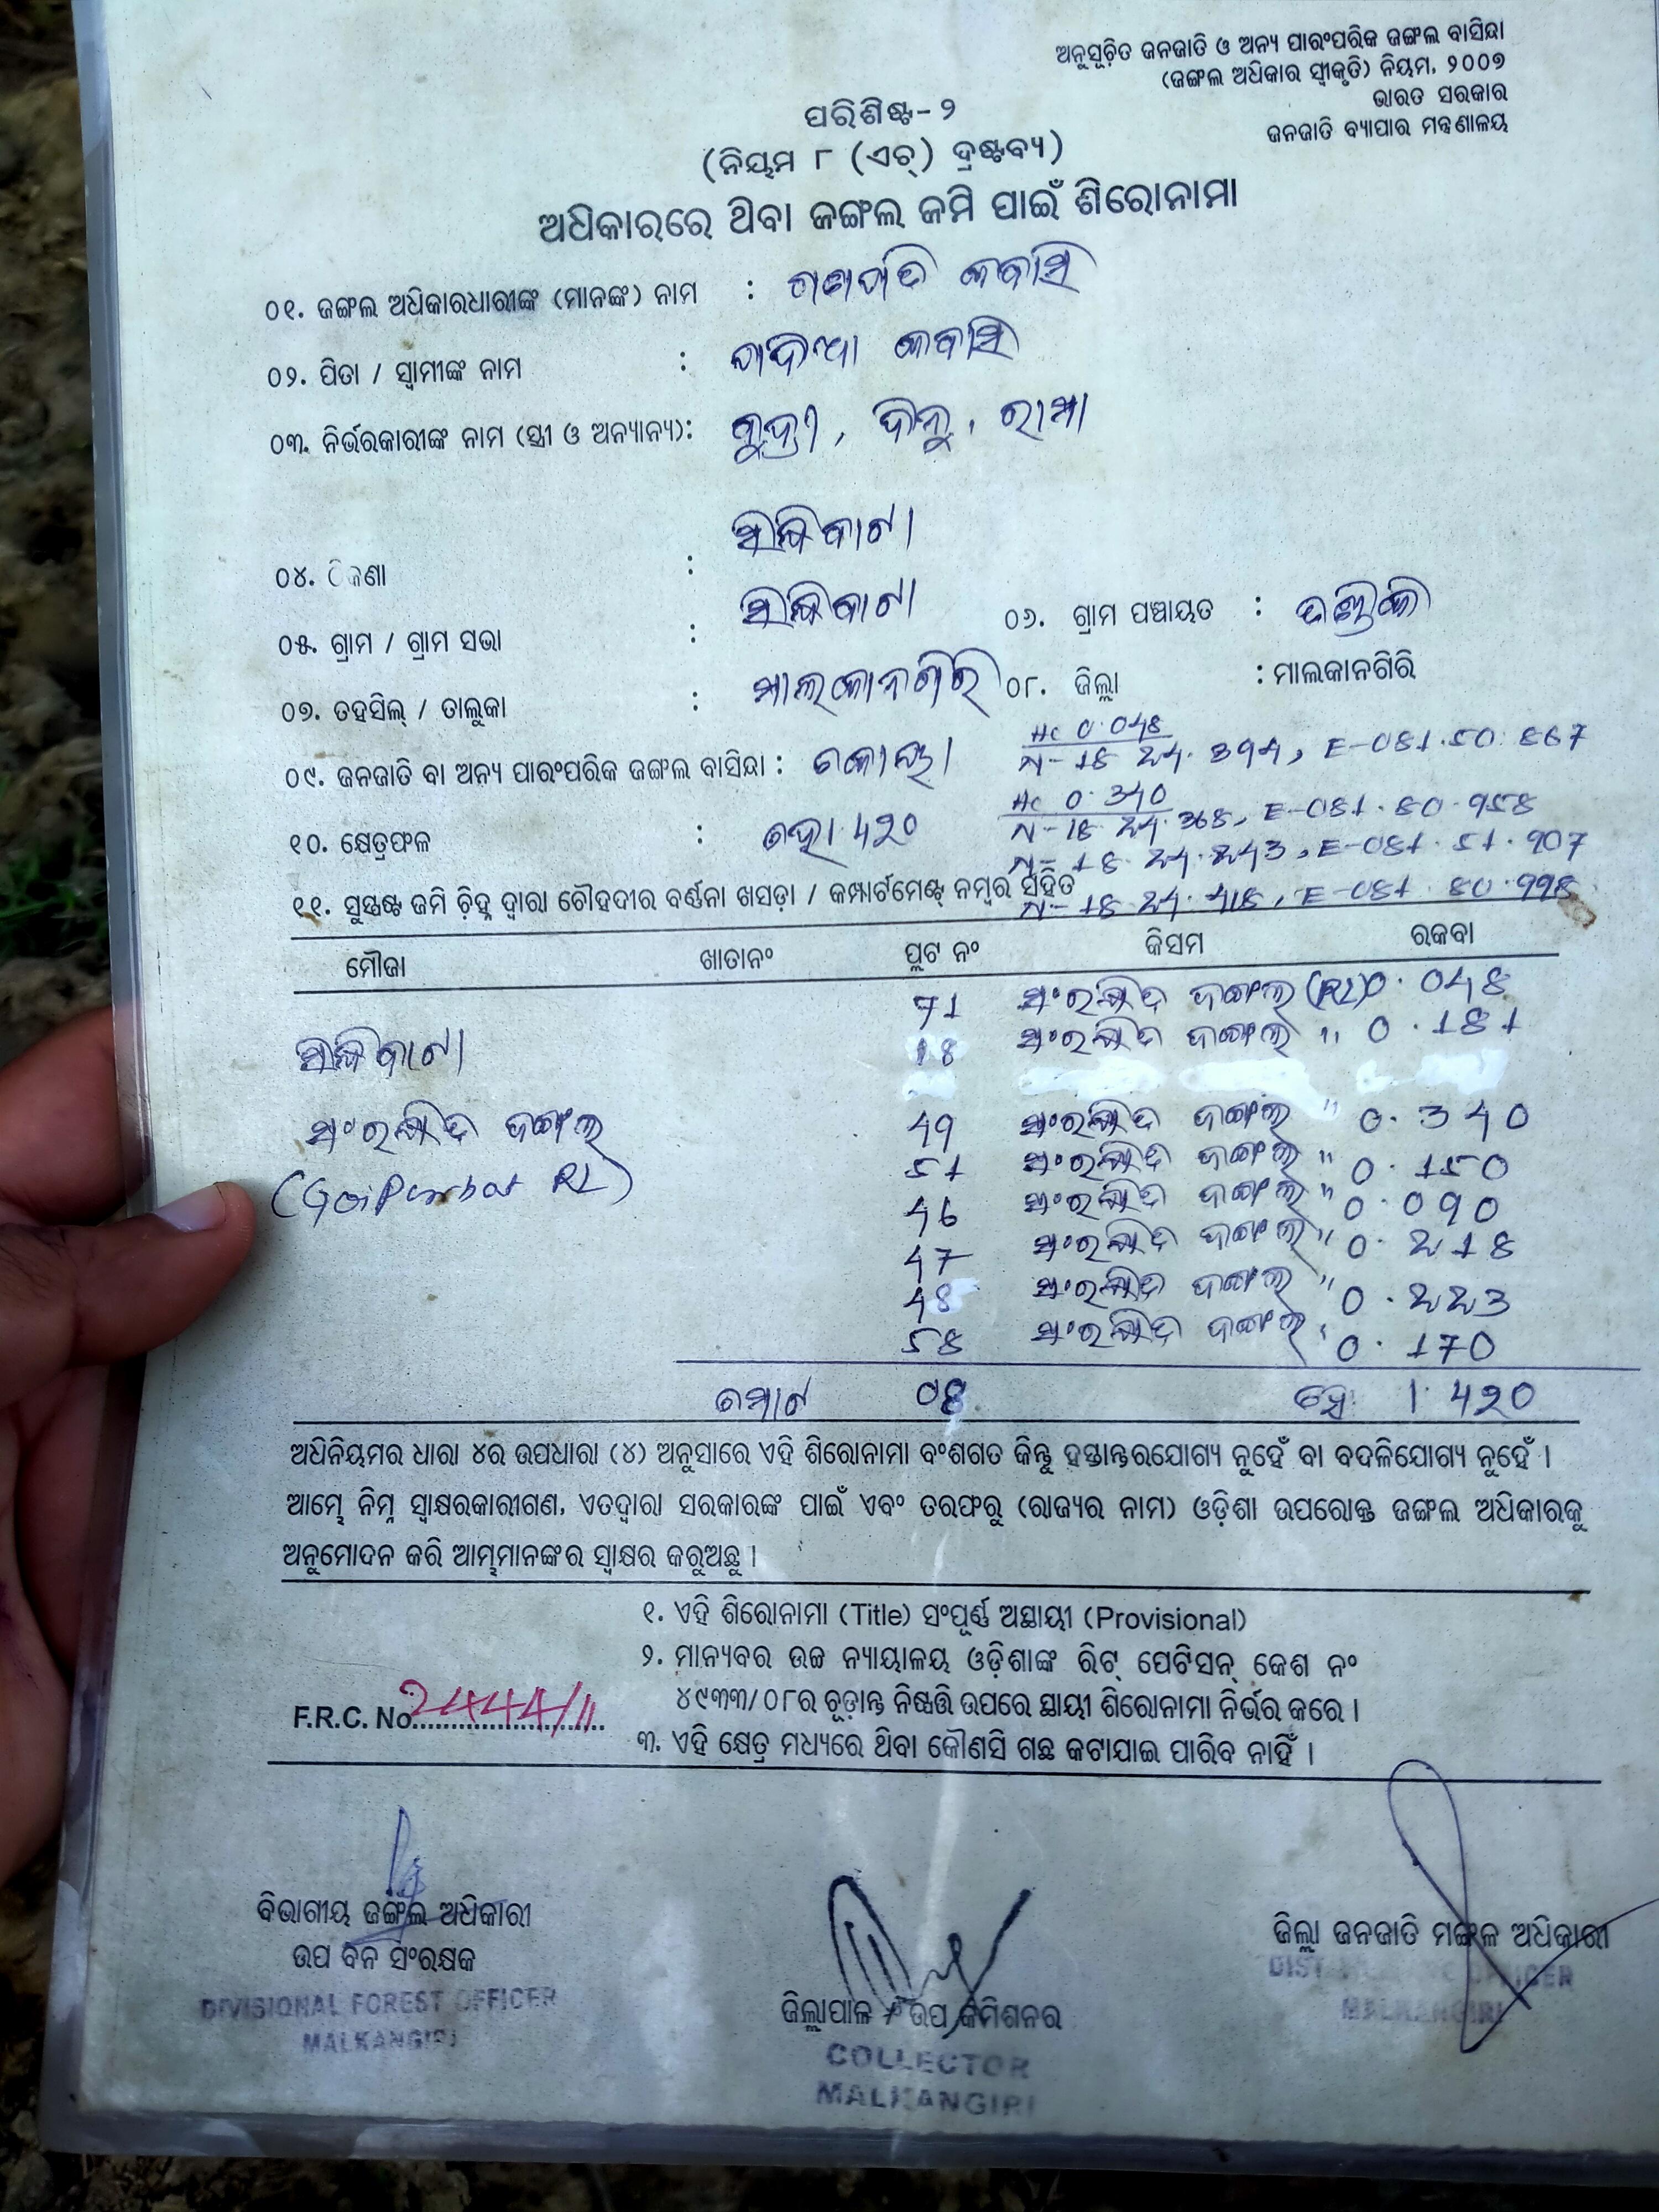 ଅନୁସୂଚିତ ଜନଜାତି ଓ ଅନ୍ୟ ପାରଂପରିକ ଜଙ୍ଗଲ ବାସିନ୍ଦା
(ଜଙ୍ଗଲ ଅଧିକାର ସ୍ୱୀକୃତି) ନିୟମ, ୨୦୦୭
ଭାରତ ସରକାର
ଜନଜାତି ବ୍ୟାପାର ମନ୍ତ୍ରଣାଳୟ
ପରିଶିଷ୍ଟ-୨
(ନିୟମ ୮ (ଏଚ୍) ଦ୍ରଷ୍ଟବ୍ୟ)
ଅଧିକାରରେ ଥିବା ଜଙ୍ଗଲ ଜମି ପାଇଁ ଶିରୋନାମା
୦୧. ଜଙ୍ଗଲ ଅଧିକାରଧାରୀଙ୍କ (ମାନଙ୍କ) ନାମ : ଗଣପତି କେବାସି
୦୨. ପିତା / ସ୍ୱାମୀଙ୍କ ନାମ : କେବାସି
୦୩. ନିର୍ଭରକାରୀଙ୍କ ନାମ (ସ୍ତ୍ରୀ ଓ ଅନ୍ୟାନ୍ୟ):
୦୪. ଠିକଣା :
୦୫. ଗ୍ରାମ / ଗ୍ରାମ ସଭା :
୦୬. ଗ୍ରାମ ପଞ୍ଚାୟତ :
୦୭. ତହସିଲ୍ / ତାଲୁକା : ମାଲକାନଗିରି
୦୮. ଜିଲ୍ଲା : ମାଲକାନଗିରି
Hc 0.048
N-18 24.394, E-081.50.867
୦୯. ଜନଜାତି ବା ଅନ୍ୟ ପାରଂପରିକ ଜଙ୍ଗଲ ବାସିନ୍ଦା : କୋୟା
Hc 0.340
N-18 24.368, E-081.80.958
୧୦. କ୍ଷେତ୍ରଫଳ :
N-18.24.243, E-081.51.907
N-18 24.418, E-081.80.998
୧୧. ସୁସ୍ପଷ୍ଟ ଜମି ଚିହ୍ନ ଦ୍ୱାରା ଚୌହଦୀର ବର୍ଣ୍ଣନା ଖସଡ଼ା / କମ୍ପାର୍ଟମେଣ୍ଟ୍ ନମ୍ବର ସହିତ
ମୌଜା ଖାତାନଂ ପ୍ଲଟ ନଂ କିସମ ରକବା
71 ସଂରକ୍ଷିତ ଜଙ୍ଗଲ (RL) 0.048
18 ସଂରକ୍ଷିତ ଜଙ୍ଗଲ " 0.181
ସଂରକ୍ଷିତ ଜଙ୍ଗଲ 49 ସଂରକ୍ଷିତ ଜଙ୍ଗଲ " 0.340
51 ସଂରକ୍ଷିତ ଜଙ୍ଗଲ " 0.150
46 ସଂରକ୍ଷିତ ଜଙ୍ଗଲ " 0.090
47 ସଂରକ୍ଷିତ ଜଙ୍ଗଲ " 0.218
48 ସଂରକ୍ଷିତ ଜଙ୍ଗଲ " 0.223
58 ସଂରକ୍ଷିତ ଜଙ୍ଗଲ " 0.170
ମୋଟ 08 ହେ 1.420
ଅଧିନିୟମର ଧାରା ୪ର ଉପଧାରା (୪) ଅନୁସାରେ ଏହି ଶିରୋନାମା ବଂଶଗତ କିନ୍ତୁ ହସ୍ତାନ୍ତରଯୋଗ୍ୟ ନୁହେଁ ବା ବଦଳିଯୋଗ୍ୟ ନୁହେଁ ।
ଆମ୍ଭେ ନିମ୍ନ ସ୍ୱାକ୍ଷରକାରୀଗଣ, ଏତଦ୍ୱାରା ସରକାରଙ୍କ ପାଇଁ ଏବଂ ତରଫରୁ (ରାଜ୍ୟର ନାମ) ଓଡ଼ିଶା ଉପରୋକ୍ତ ଜଙ୍ଗଲ ଅଧିକାରକୁ
ଅନୁମୋଦନ କରି ଆମ୍ଭମାନଙ୍କର ସ୍ୱାକ୍ଷର କରୁଅଛୁ ।
୧. ଏହି ଶିରୋନାମା (Title) ସଂପୂର୍ଣ୍ଣ ଅସ୍ଥାୟୀ (Provisional)
୨. ମାନ୍ୟବର ଉଚ୍ଚ ନ୍ୟାୟାଳୟ ଓଡ଼ିଶାଙ୍କ ରିଟ୍ ପେଟିସନ୍ କେଶ ନଂ
୪୯୩୩/୦୮ର ଚୂଡ଼ାନ୍ତ ନିଷ୍ପତ୍ତି ଉପରେ ସ୍ଥାୟୀ ଶିରୋନାମା ନିର୍ଭର କରେ ।
F.R.C. No. 2444/11
୩. ଏହି କ୍ଷେତ୍ର ମଧ୍ୟରେ ଥିବା କୌଣସି ଗଛ କଟାଯାଇ ପାରିବ ନାହିଁ ।
ବିଭାଗୀୟ ଜଙ୍ଗଲ ଅଧିକାରୀ
ଉପ ବନ ସଂରକ୍ଷକ
DIVISIONAL FOREST OFFICER
MALKANGIRI
ଜିଲ୍ଲାପାଳ / ଉପ କମିଶନର
COLLECTOR
MALKANGIRI
ଜିଲ୍ଲା ଜନଜାତି ମଙ୍ଗଳ ଅଧିକାରୀ
OFFICER
MALKANGIRI